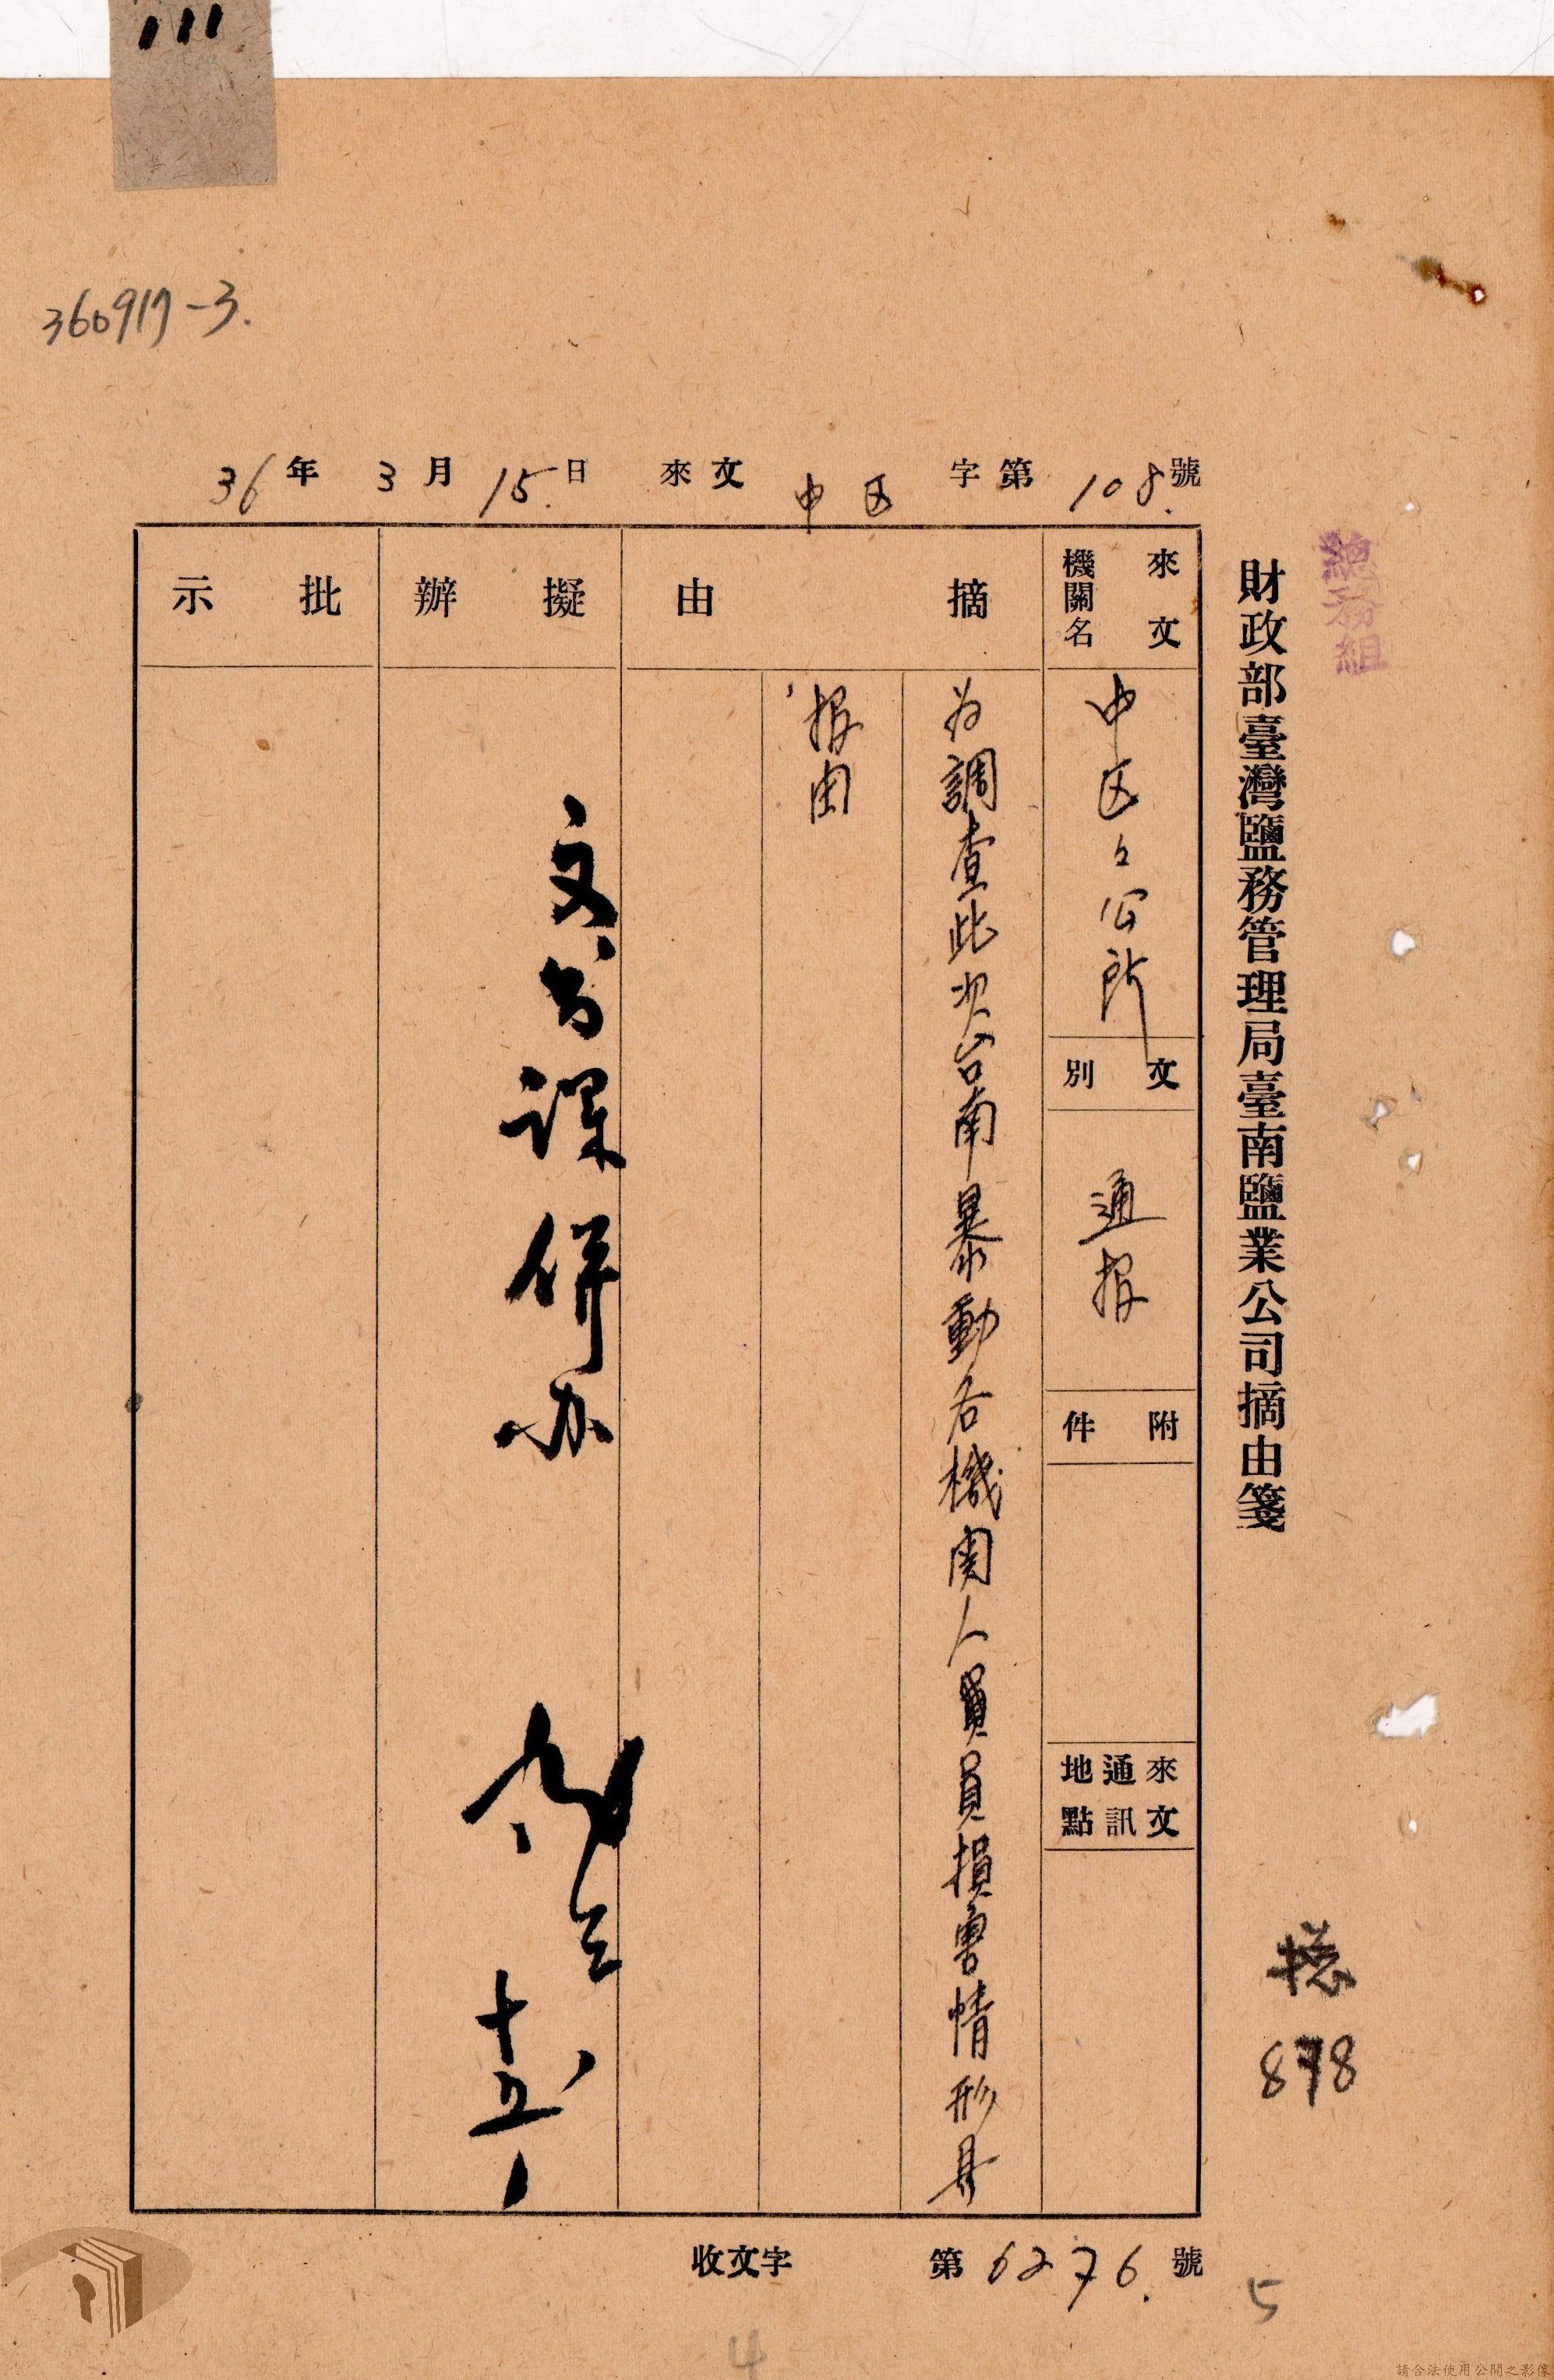 111
360917-3.
總務組
財政部臺灣鹽務管理局臺南鹽業公司摘由箋
36年3月15.日 來文 中区字第108.號
來文機關名
中区々公所
文別
通报
附件
來文通訊地點
摘由
为調查此次台南暴動各機関人員員損害情形具
报由
擬辦
文书课併办
三
十五
批示
收文字 第6276.號
878
5
4
請合法使用公開之影像